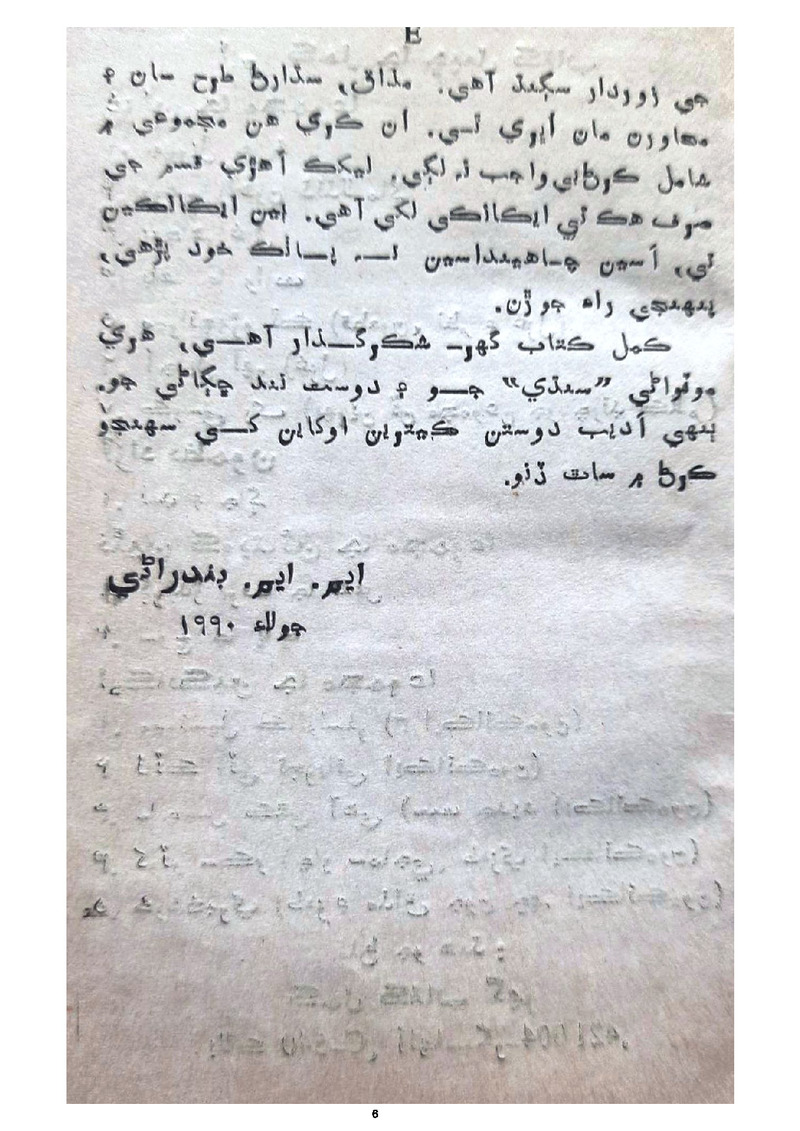 E
جي زوردار سگهند آهي. مذاق، سڌارڻ طرح سان ۽
محاورن مان اُپري ٿي. ان ڪري هن مجموعي ۾
شامل ڪرڻ واجب نہ لڳي. ليڪڪ اهڙي قسم جي
صرف هڪ ئي ايڪانڪي لکي آهي. اين ايڪانڪين
تي، اسين چاهينداسين تہ پاٺڪ خود پڙهي،
پنهنجي راءِ جوڙن.
ڪمل ڪتاب گهر شڪرگذار آهي، هري
موٽواڻي "سنڌي" جو ۽ دوست نند ڇڳاڻي جو.
ٻنهي اديب دوستن ڪيترين اوکاين کي سهنجو
ڪرڻ ۾ ساٿ ڏنو.
ايم. ايم. بندراڻي
جولاءِ ١٩٩٠
6